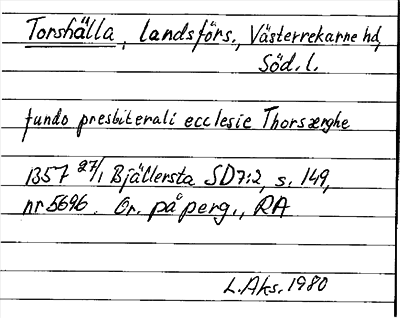 Torshälla, landsförs., Västerrekarne hd,
Söd. l.
fundo presbiterali ecclesie Thorsærghe
1357 27/1 Bjällersta SD7:2, s. 149,
nr 5696. Or. på perg., RA
L. Aks. 1980